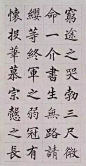 窮途之哭勃三尺微
命一介書生無路請
纓等終軍之弱冠有
懷投筆慕宗愨之長